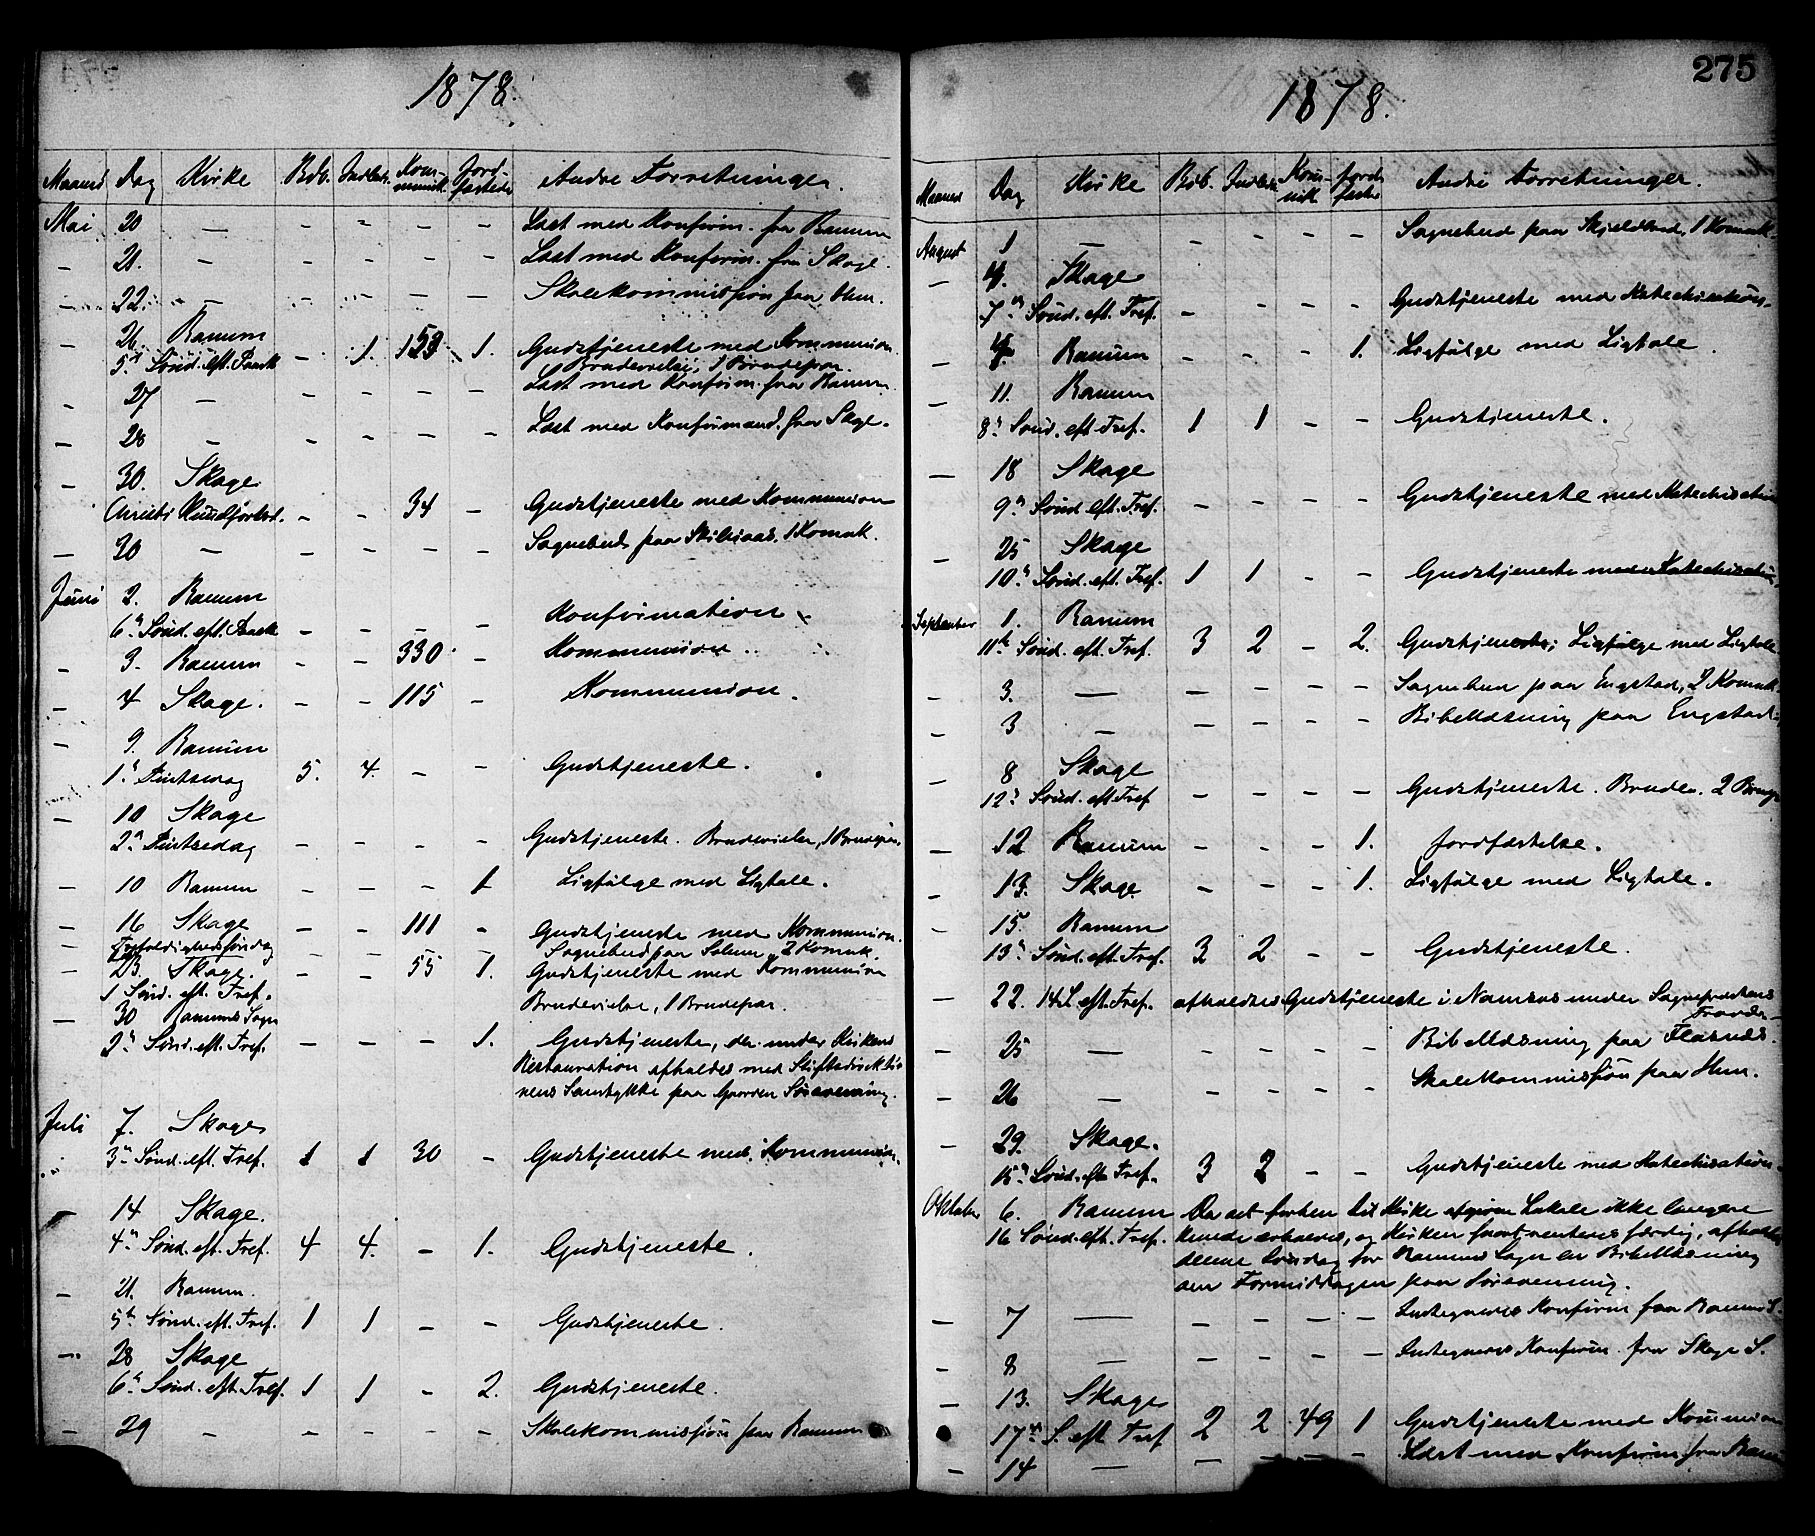 1878.
Maaned Dag Kirke Bdb. Indled. Kom-munik. Jord-fæstede Andre Forretninger.
Mai 20 — - - - - Læst med Konfirm. fra Ranum
- 21. - - - - - Læst med Konfirm. fra Skage.
- 22. - - - - - Skolekommission paa Hun.
- 26. Ranum
5te Sønd. eft. Paask - 1. 153 1. Gudstjeneste med Kommunion.
Brudevielse, 1 Brudepar.
- 27 - - - - - Læst med Konfirm. fra Ranum.
- 28 - - - - - Læst med Konfirmand. fra Skage.
- 30. Skage
Christi Himmelfartsd. - - 34 - Gudstjeneste med Kommunion
- 30 - - - - - Sognebud paa 1 Komuk.
Juni 2. Ranum
6te Sønd. eft. Paask - - - - Konfirmation
- 3. Ranum - - 330 - Kommunion.
- 4 Skage. - - 115 - Kommunion.
- 9. Ranum
1ste Pintsedag 5. 4. - - Gudstjeneste.
- 10 Skage
2den Pintsedag - - - - Gudstjeneste. Brudevielse, 1 Brudepar.
- 10 Ranum - - - 1 Ligfølge med Ligtale.
- 16 Skage - - 111 - Gudstjeneste med Kommunion.
- Trefoldighedssøndag - - - - Sognebud paa Solum, 2 Komuk.
- 23. Skage. - - 55 1. Gudstjeneste med Kommunion
1 Sønd. eft. Tref. Brudevielse, 1 Brudepar.
- 30 Ranums Sogn
2den Sønd. eft. Tref. - - - 1. Gudstjeneste, der under Kirkens
Restauration afholdes med Stiftsdirektio-
nens Samtykke paa Gaarden Søraunning.
Juli 7. Skage
3die Sønd. eft. Tref. 1 1 30 - Gudstjeneste med Kommunion.
- 14 Skage.
4de Sønd. eft. Tref. 4 4. - 1. Gudstjeneste.
- 21. Ranum.
5te Sønd. eft. Tref. 1 1 - - Gudstjeneste.
- 28 Skage
6te Sønd. eft. Tref. 1 1 - 2. Gudstjeneste.
- 29 - - - - - Skolekommission paa Ranum
275
1878.
Maaned Dag Kirke Bdb. Indled. Kom-unik Jord-fæste Andre Forretninger.
August 1 — - - - - Sognebud paa 1 Komuk.
- 4. Skage
7de Sønd. eft. Tref. - - - - Gudstjeneste med Katechisation.
- 4. Ranum - - - 1. Ligfølge med Ligtale.
- 11. Ranum
8de Sønd. eft. Tref. 1 1 - - Gudstjeneste.
- 18 Skage
9de Sønd. eft. Tref. - - - - Gudstjeneste med Katechisation
- 25 Skage
10de Sønd. eft. Tref. 1 1 - - Gudstjeneste med Katechisation
September 1. Ranum
11te Sønd. eft. Tref. 3 2 - 2. Gudstjeneste; Ligfølge med Ligtale
- 3. — - - - - Sognebud paa Engstad, 2 Komuk.
- 3 - - - - - Bibellæsning paa Engstad
- 8 Skage
12te Sønd. eft. Tref - - - - Gudstjeneste. Brudev. 2 Brudep
- 12 Ranum - - - 1. Jordfæstelse.
- 13. Skage - - - 1. Ligfølge med Ligtale.
- 15. Ranum
13de Sønd. eft. Tref. 3 2 - - Gudstjeneste.
- 22. 14 S. eft. Tref. afholdtes Gudstjeneste i Namsos under Sognepræstens
Fravær.
- 25 — - - - - Bibellæsning paa Flasnes.
- 26 - - - - - Skolekommission paa Hun.
- 29. Skage.
15de Sønd. eft. Tref. 3 2 - - Gudstjeneste med Katechisation.
Oktober 6. Ranum Da det forhen til Kirke afgivne Lokale ikke længere
16 Sønd. eft. Tref. kunde erholdes, og Kirken snart ventes færdig, afholdtes
denne Søndag for Ranums Sogn en Bibellæsning
om Formiddagen paa Søraunning.
- 7 — - - - - Indtegnedes Konfirm fra Ranum S.
- 8 - - - - - Indtegnedes Konfirm. fra Skage S.
- 13. Skage
17de S. eft Tref 2 2 49 1 Gudstjeneste med Kommunion
- 14 - - - - - Læst med Konfirm fra Ranum